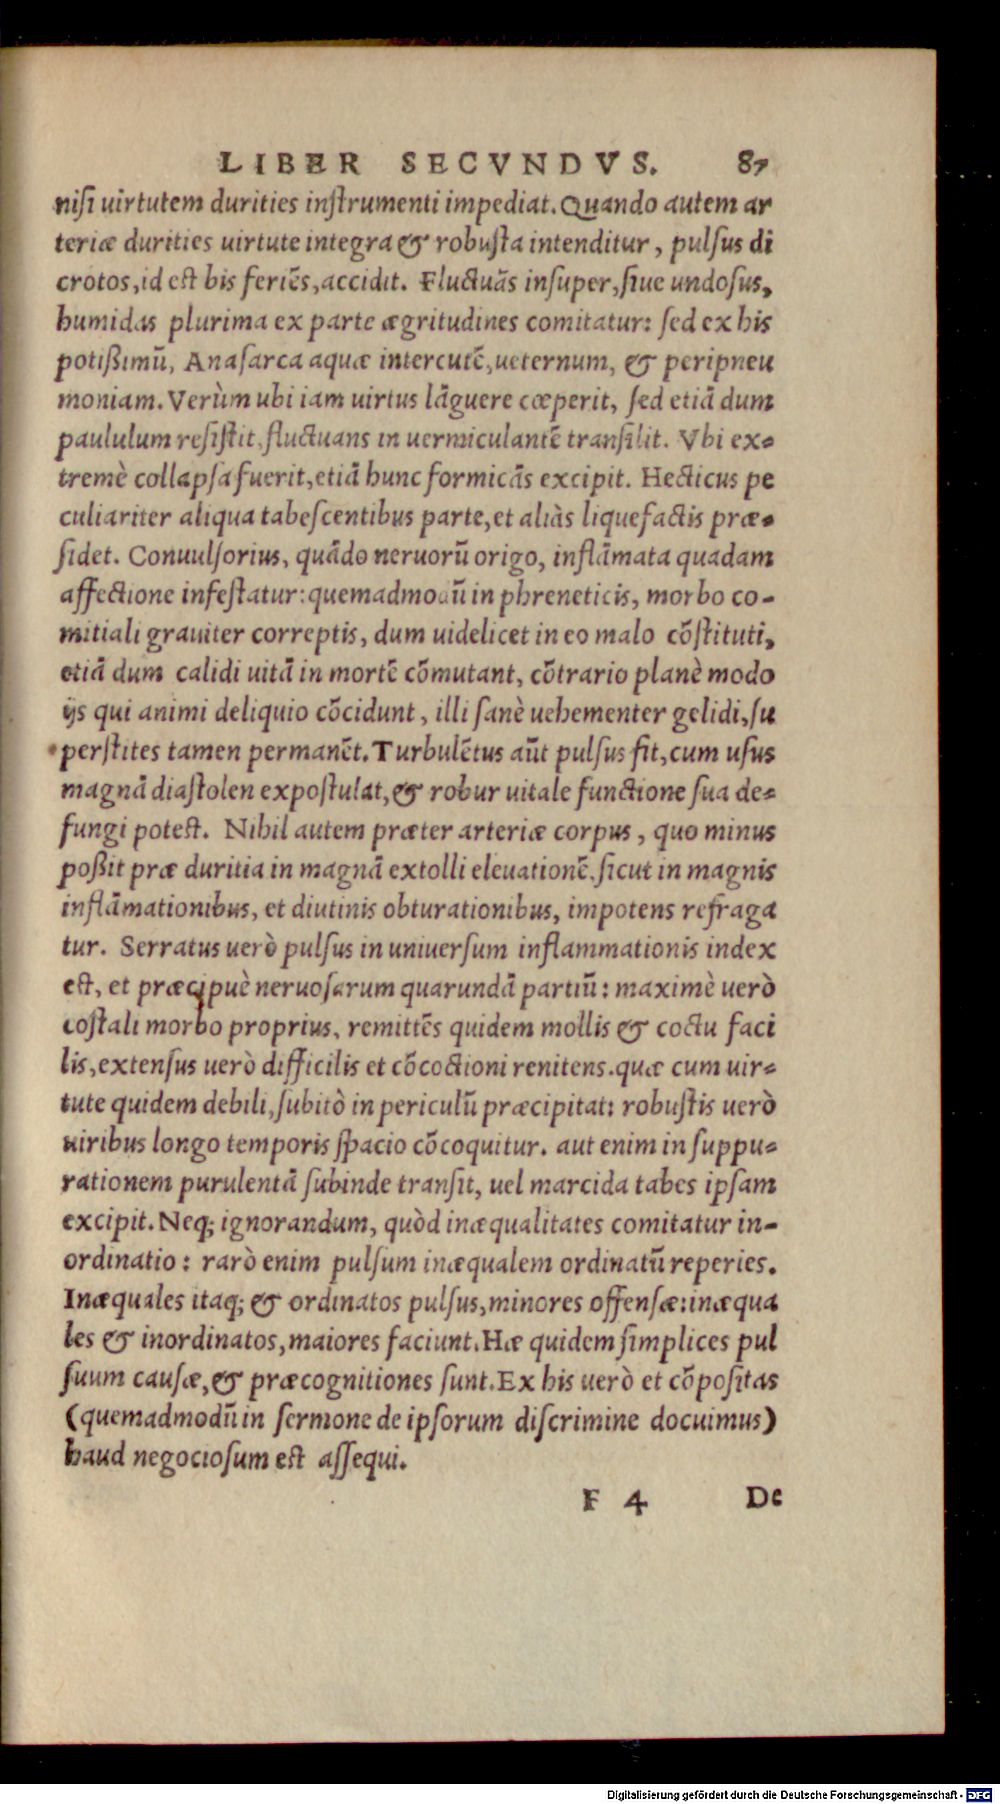 LIBER SECVNDVS. 87
nisi uirtutem durities instrumenti impediat. Quando autem ar
teriæ durities uirtute integra & robusta intenditur, pulsus di
crotos, id est bis feriẽs, accidit. Fluctuãs insuper, siue undosus,
humidas plurima ex parte ægritudines comitatur: sed ex his
potißimũ, Anasarca aquæ intercutẽ, ueternum, & peripneu
moniam. Verùm ubi iam uirtus lãguere cœperit, sed etiã dum
paululum resistit, fluctuans in uermiculantẽ transilit. Vbi ex-
tremè collapsa fuerit, etiã hunc formicãs excipit. Hecticus pe
culiariter aliqua tabescentibus parte, et aliàs liquefactis præ-
sidet. Conuulsorius, quãdo neruorũ origo, inflãmata quadam
affectione infestatur: quemadmodũ in phreneticis, morbo co-
mitiali grauiter correptis, dum uidelicet in eo malo cõstituti,
etiã dum calidi uitã in mortẽ cõmutant, cõtrario planè modo
ijs qui animi deliquio cõcidunt, illi sanè uehementer gelidi, su
perstites tamen permanẽt. Turbulẽtus aũt pulsus fit, cum usus
magnã diastolen expostulat, & robur uitale functione sua de-
fungi potest. Nihil autem præter arteriæ corpus, quo minus
poßit præ duritia in magnã extolli eleuationẽ. sicut in magnis
inflãmationibus, et diutinis obturationibus, impotens refraga
tur. Serratus uerò pulsus in uniuersum inflammationis index
est, et præcipuè neruosarum quarundã partiũ: maximè uerò
costali morbo proprius, remittẽs quidem mollis & coctu faci
lis, extensus uerò difficilis et cõcoctioni renitens. quæ cum uir-
tute quidem debili, subitò in periculũ præcipitat: robustis uerò
uiribus longo temporis spacio cõcoquitur. aut enim in suppu-
rationem purulentã subinde transit, uel marcida tabes ipsam
excipit. Neq; ignorandum, quòd inæqualitates comitatur in-
ordinatio: rarò enim pulsum inæqualem ordinatũ reperies.
Inæquales itaq; & ordinatos pulsus, minores offensæ: inæqua
les & inordinatos, maiores faciunt. Hæ quidem simplices pul
suum causæ, & præcognitiones sunt. Ex his uerò et cõpositas
(quemadmodũ in sermone de ipsorum discrimine docuimus)
haud negociosum est assequi.
F 4 De
Digitalisierung gefördert durch die Deutsche Forschungsgemeinschaft - DFG